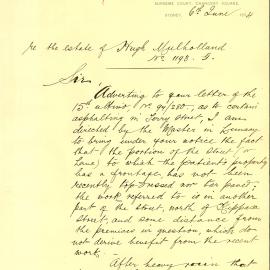 SUPREME COURT, CHANCERY SQUARE,
SYDNEY, 6th June 1894
re the estate of Hugh Mulholland
No. 1198. G.
Sir
Adverting to your letter of the
15th ultimo No. 94/280, as to certain
asphalting in Terry street, I am
directed by the Master in Lunacy
to bring under your notice the fact
that the portion of the street (or
Lane) to which the patient's property
has a frontage, has not been
recently top dressed nor tar paved;
the work referred to is on another
part of the street, north of Chippen
Street, and some distance from
the premises in question, which do
not derive benefit from the recent
work. -
After having
that